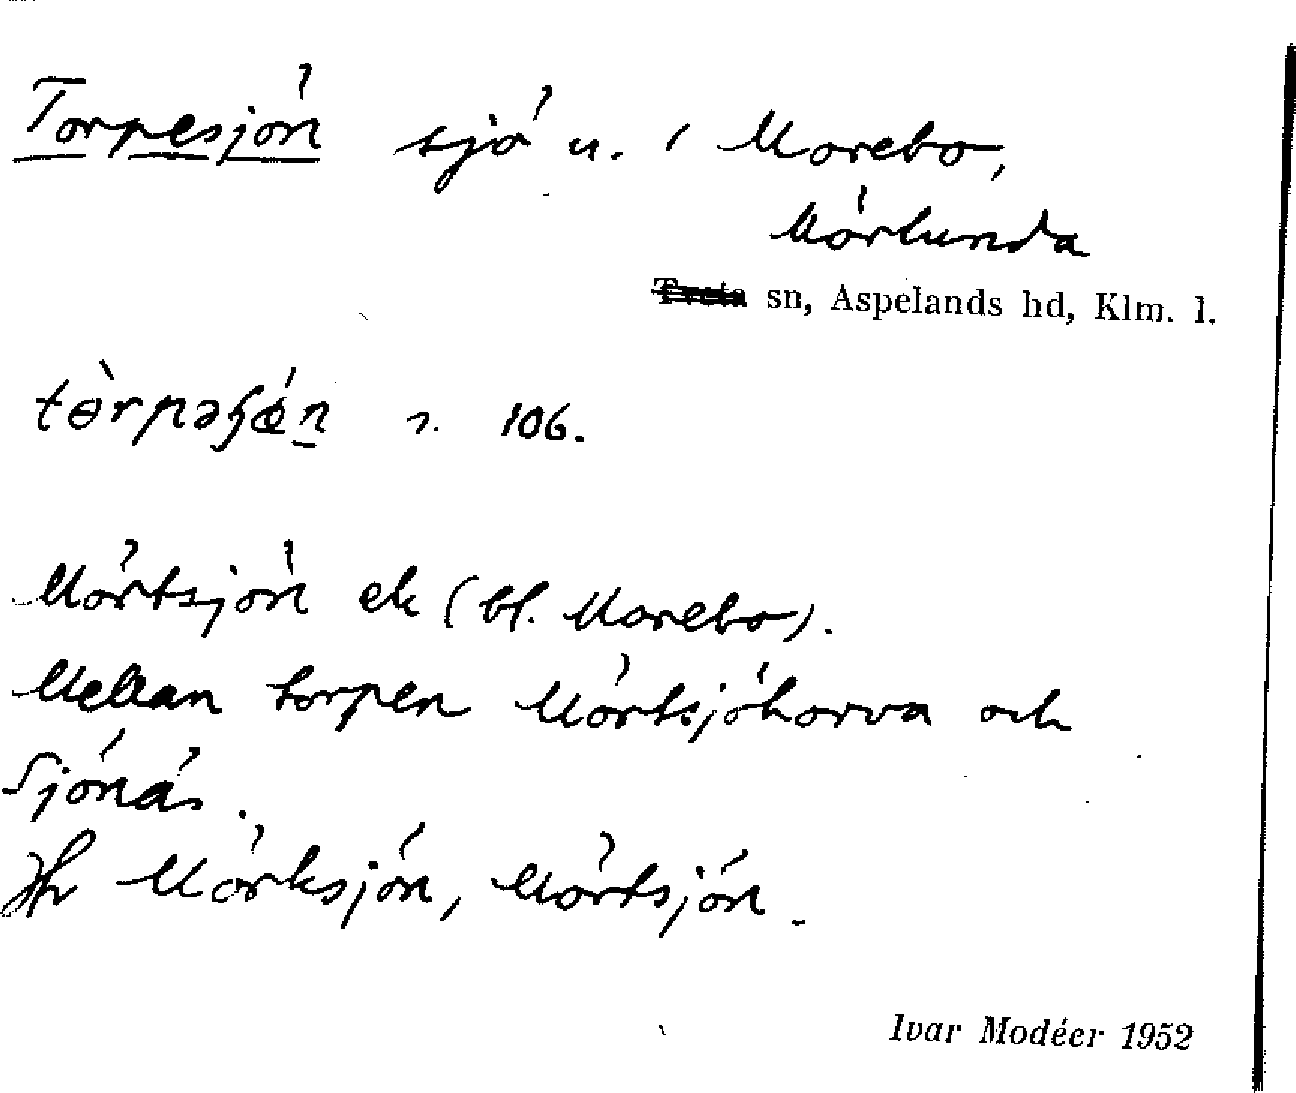 Torpesjön sjö n. i Morebo,
Mörlunda
Tveta sn, Aspelands hd, Klm. l.
tɵ̀rpəɧǿn 106.
Mörtsjön ek (bl. Morebo).
Mellan torpen Mörtsjöhorva och
Sjönäs.
Hr Mörksjön, Mörtsjön.
Ivar Modéer 1952